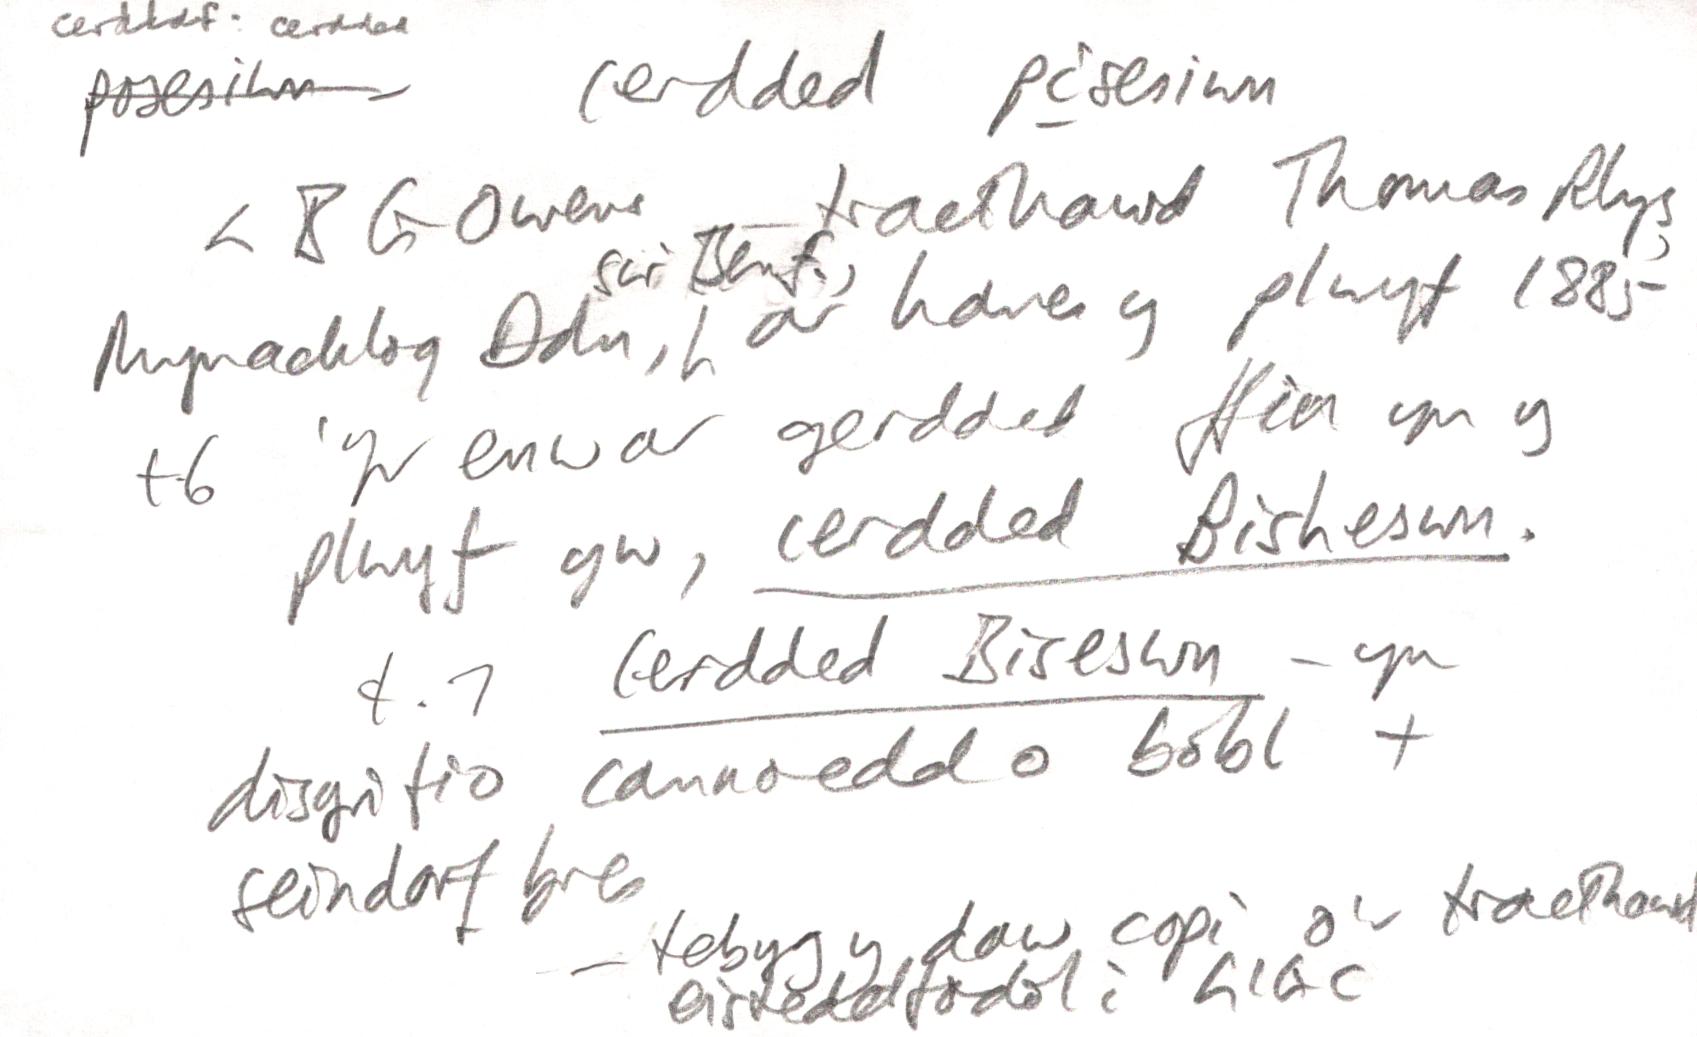 cerddaf: cerdded
posesiwn cerdded pisesiwn
< B G Owens — traethawd Thomas Rhys,
sir Benf.,
Mynachlog Ddu, ar hanes y plwyf 1885
t 6 'Yr enw ar gerdded ffin yn y
plwyf yw, cerdded Bisheswn.
t. 7 Cerdded Biseswn – yn
disgrifio cannoedd o bobl +
seindorf bres
— tebyg y daw copi o'r traethawd
eisteddfodol i LlGC